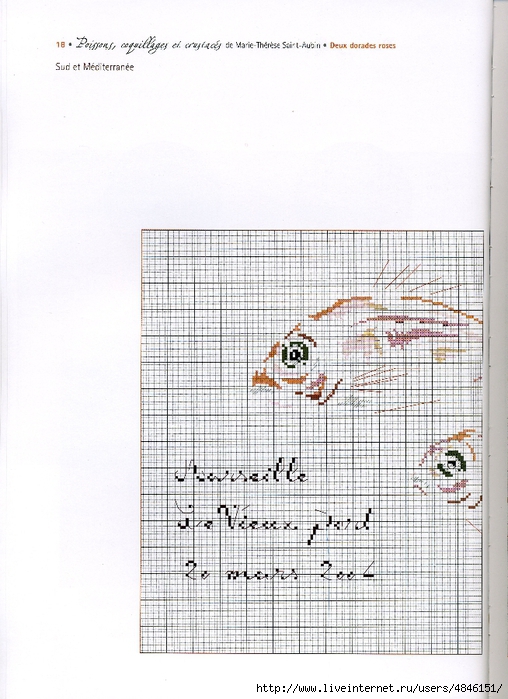 18 • Poissons, coquillages et crustacés de Marie-Thérèse Saint-Aubin • Deux dorades roses
Sud et Méditerranée
Marseille
Le Vieux port
20 mars
http://www.liveinternet.ru/users/4846151/